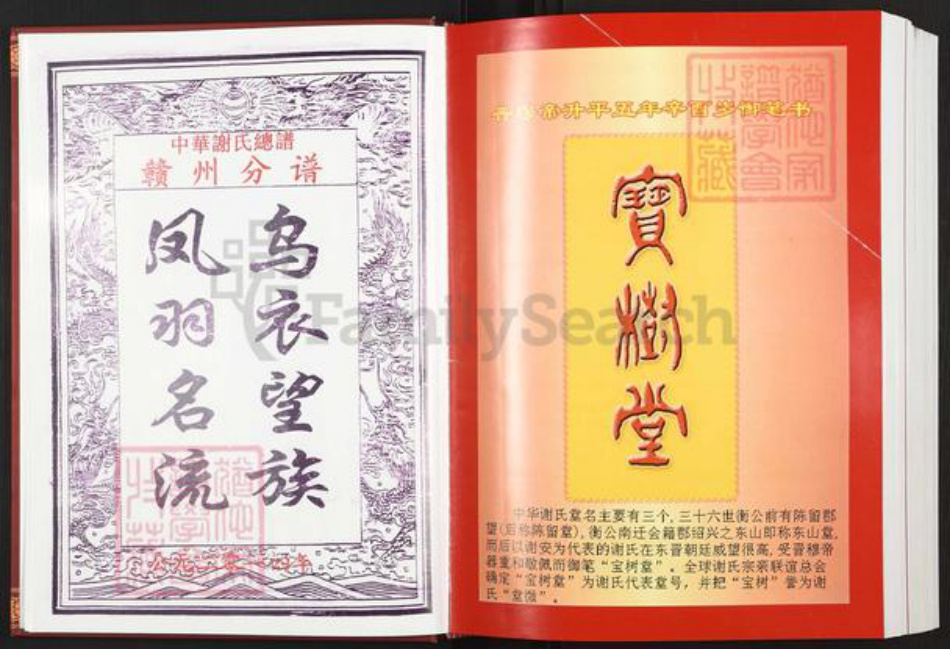 中華謝氏總譜
赣州分谱
乌衣望族
凤羽名流
FamilySearch
帝升平五年辛酉岁御笔书
寶樹堂
中华谢氏堂名主要有三个,三十六世衡公前有陈留郡
望(后称陈留堂),衡公南迁会籍郡绍兴之东山即称东山堂,
而后以谢安为代表的谢氏在东晋朝廷威望很高,受晋穆帝
器重和敬佩而御笔“宝树堂”。全球谢氏宗亲联谊总会
确定“宝树堂”为谢氏代表堂号,并把“宝树”誉为谢
氏“堂徽”。